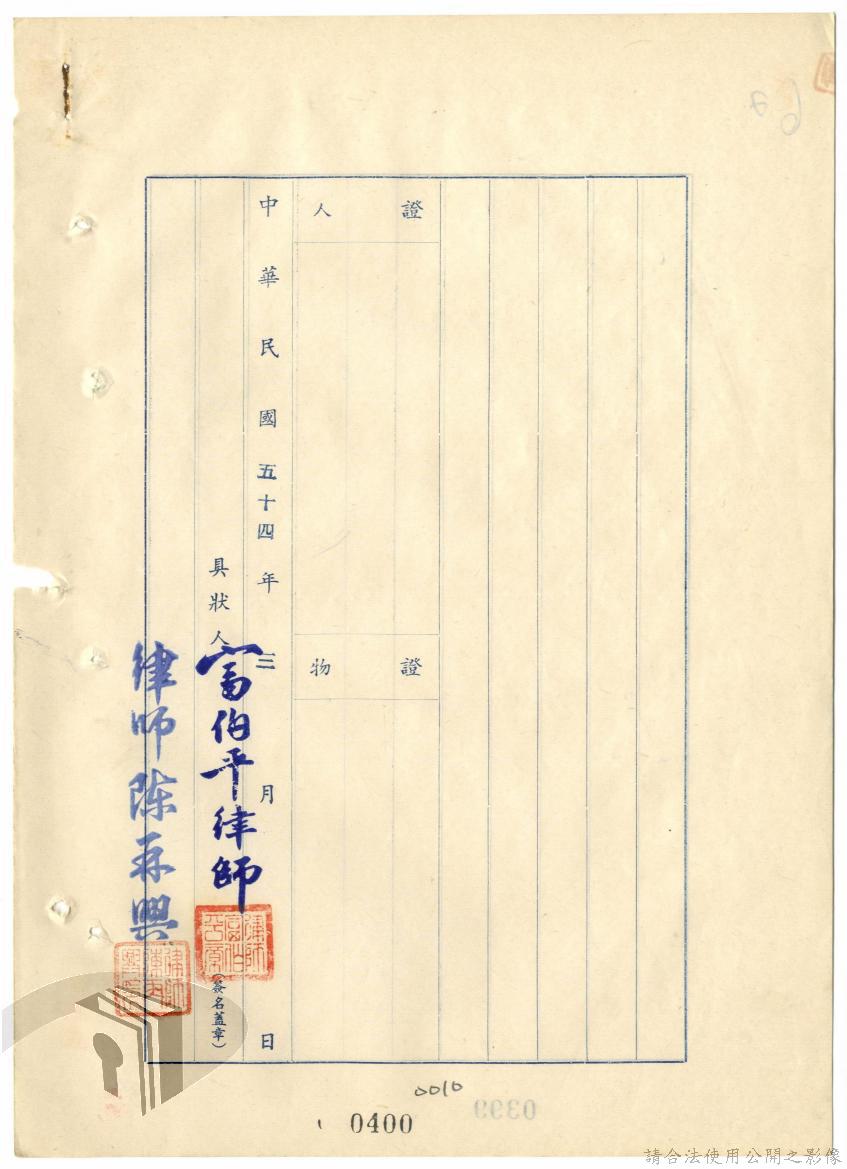 證人
證物
中華民國五十四年三月 日
具狀人 富伯平律師
(簽名蓋章)
律師富伯平章
律師陳丕興
0010
0400
0399
請合法使用公開之影像